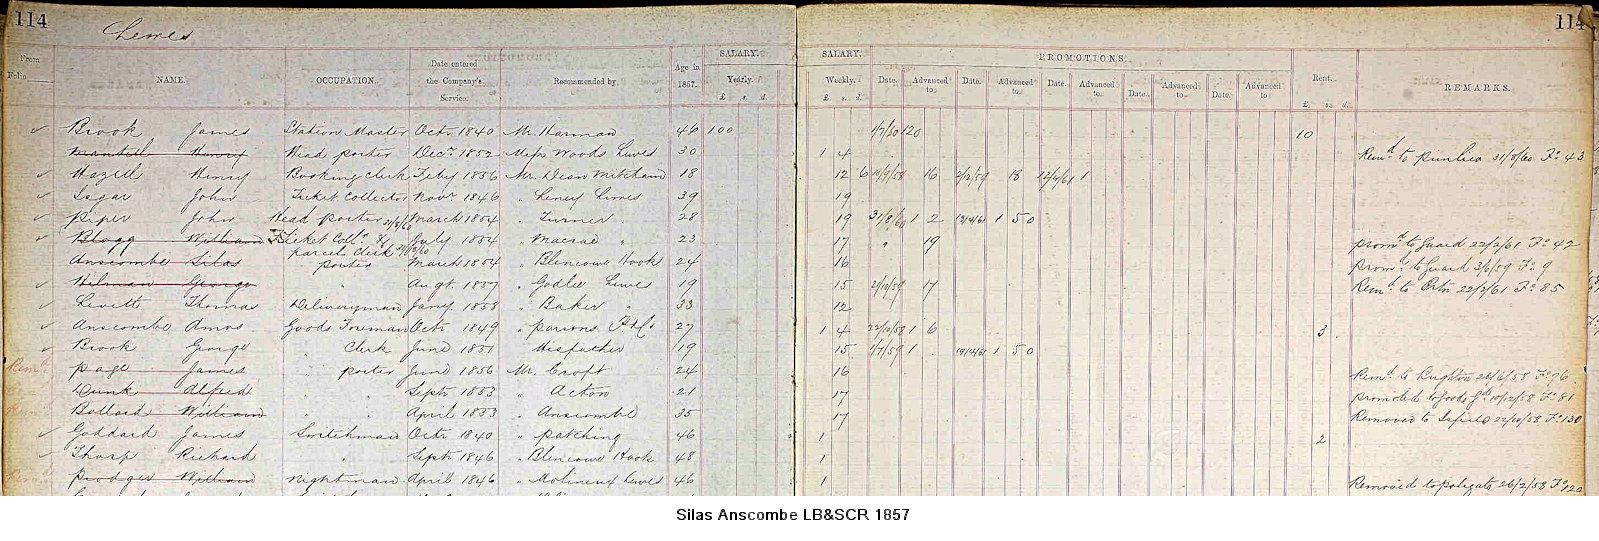 114 114
Lewes
SALARY. SALARY. PROMOTIONS.
From Folio NAME. OCCUPATION. Date entered the Company's Service. Recommended by. Age in 1857. Yearly. £ s. d. Weekly. £ s. d. Date. Advanced to. Date. Advanced to. Date. Advanced to. Date. Advanced to. Date. Advanced to. Rent. £ s. d. REMARKS.
✓ Brook James Station Master Octr 1840 Mr. Harman 46 100 1/7/60 120 10
Mantell Henry Head porter Decr 1852 Miss Woods Lewes 30 1 4 Remd to Pimlico 31/8/60 Fo 43
✓ Hazell Henry Booking Clerk Feby 1856 Mr. Dean Mitcham 18 12 6 10/9/58 16 2/2/59 18 12/4/61 1
✓ Isgar John Ticket Collector Novr 1846 " Lewes 39 19
✓ Piper John Head porter 31/8/60 March 1854 " Turner " 28 19 31/8/60 1 2 19/4/61 1 5 0
✓ Blogg William Ticket Collr & parcels Clerk July 1854 " Macrae " 23 17 " 19 promd to Guard 22/2/61 Fo 42
Anscombe Silas porter March 1854 " Blencowe Hook 24 16 promd to Guard 3/6/59 Fo 9
✓ Hilman George " Augt. 1857 " Godlee Lewes 19 15 17 Remd to Brtn 22/2/61 Fo 85
✓ Levett Thomas Deliveryman Jany 1858 " Baker 33 12
✓ Anscombe Amos Goods Foreman Octr 1849 " Parsons 27 1 4 22/10/58 1 6 3
✓ Brook George " Clerk June 1851 19 15 1/7/59 1 . 19/4/61 1 5 0
Remd Page James " porter June 1856 Mr. Croft 24 16 Remd to Brighton 26/6/58 Fo 76
Dunk Alfred " " Septr 1853 " Acton 21 17 promoted to Goods Gd 10/2/58 Fo 81
Remd Ballard William " " April 1853 " Anscombe 35 17 Removed to 22/10/58 Fo 130
✓ Goddard James Switchman Octr 1840 " Patching 46 1 2
✓ Tharp Richard " Septr 1846 " Blencowe Hook 48 1
Remd Prodger William Nightman April 1846 " Molineux Lewes 46 1 Removed to Polegate 26/2/58 Fo 120
Silas Anscombe LB&SCR 1857